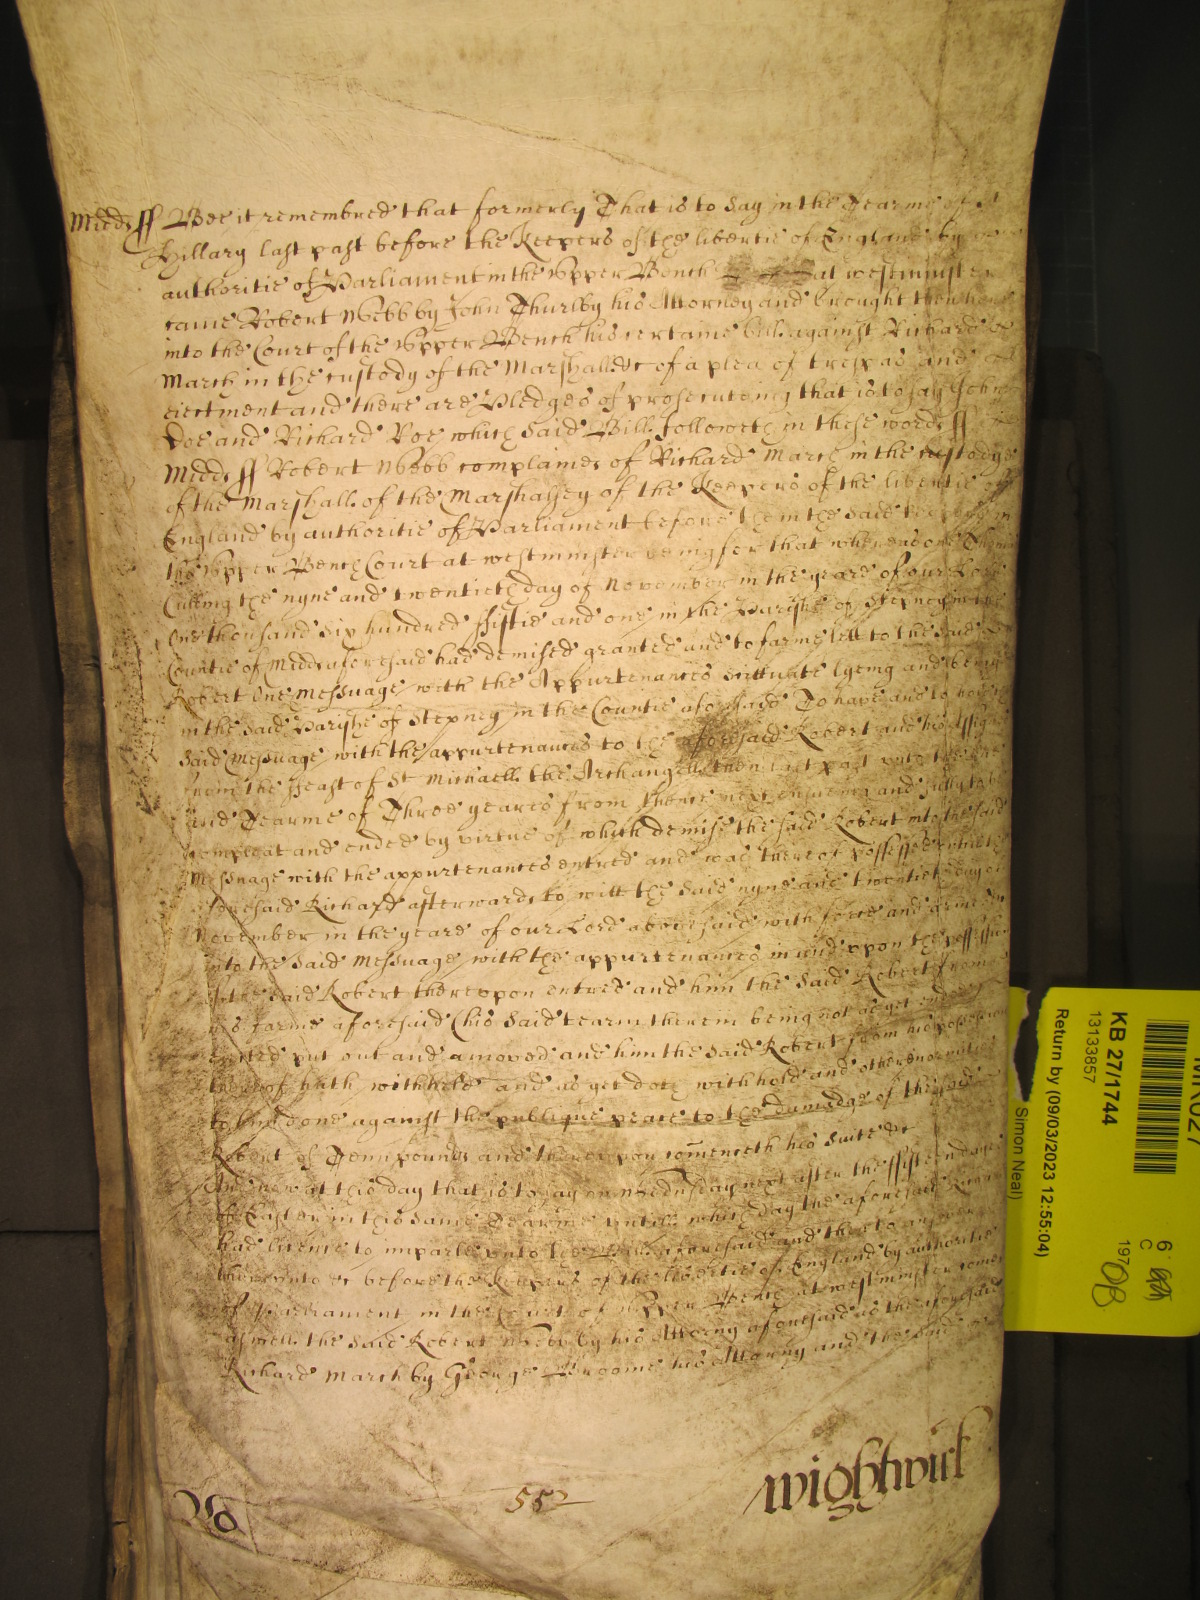 Midds ss Bee it remembred that formerly That is to say in the Tearme of St
Hillary last past before the Keepers of the libertie of England by
authoritie of Parliament in the Upper Bench at westminster
came Robert Webb by John Thurlby his Attorney and brought then here
into the Court of the Upper Bench his certaine bill against Richard
March in the custody of the Marshall &c of a plea of trespas and
eiectment and there are Pledges of prosecuteing that is to say John
Doe and Richard Roe which said Bill followeth in these words ss
Midds ss Robert Webb complaines of Richard March in the custodye
of the Marshall of the Marshalsey of the Keepers of the libertie of
England by authoritie of Parliament before the in the said
the Upper Bench Court at westminster being for that whereas one Thomas
the nyne and twentieth day of November in the yeare of our Lord
One thousand six hundred ffiftie and one in the Parishe of Stepney in the
Countie of Midds aforesaid had demised granted and to farme lett to the said
Robert One Messuage with the Appurtenances scittuate lyeing and being
in the said Parishe of Stepney in the Countie aforesaid To have and to hold the
said Messuage with the appurtenances to the aforesaid Robert and his Assignes
from the ffeast of St Michaell the Archangell then last past unto the
and Tearme of Three yeares from thence next ensueing and fully to be
compleat and ended by virtue of which demise the said Robert into the said
Messuage with the appurtenances entred and was thereof possessed untill the
aforesaid Richard afterwards to witt the said nyne and twentieth day of
November in the yeare of our Lord abovesaid with force and armes
into the said Messuage with the appurtenances in and upon the possession
of the said Robert thereupon entred and him the said Robert from
his farme aforesaid (his said tearm therein being not as yet ended)
eiected put out and amoved and him the said Robert from his possession
thereof hath withheld and as yet doth withhold and other enormities
to him done against the publique peace to the damadge of the said
Robert of Tenn pounds and thereupon comenceth his suite &c
And now at this day that is to say on wednsday next after the ffifteen dayes
of Easter in this same Tearme untill which day the aforesaid Richard
had licence to imparle unto the Bill aforesaid and then to answer
thereunto &c before the Keepers of the libertie of England by authoritie
of Parliament in the Court of Upper Bench at westminster come
aswell the said Robert Webb by his Attorny aforesaid as the aforesaid
Richard March by George Broome his Attorny and the said
552
wightwick
KB 27/1744
13133857
Return by (09/03/2023 12:55:04)
Simon Neal)